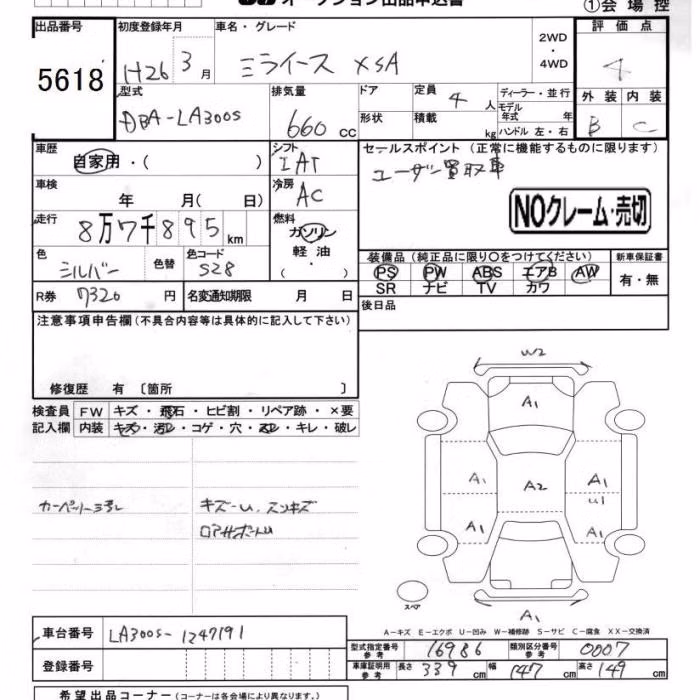 オークション出品申込書
①会場控
出品番号
5618
初度登録年月
H26 3月
車名・グレード
ミライース XSA
2WD
・
4WD
評価点
4
外装 内装
B C
型式
DBA-LA300S
排気量
660 cc
ドア
形状
定員 4 人
積載 kg
ディーラー・並行
モデル年式 年
ハンドル 左・右
車歴
自家用・( )
シフト
IAT
セールスポイント (正常に機能するものに限ります)
ユーザー買取車
NOクレーム・売切
車検
年 月( 日)
冷房
AC
走行
8万7千895km
燃料
ガソリン
軽油
・( )
色
シルバー
色替
色コード
S28
装備品 (純正品に限り○をつけてください)
PS PW ABS エアB AW
SR ナビ TV カワ
新車保証書
有・無
R券 7320 円
名変通知期限 月 日
後日品
注意事項申告欄(不具合内容等は具体的に記入して下さい)
修復歴 有 〔箇所 〕
検査員 FW キズ・飛石・ヒビ割・リペア跡・×要
記入欄 内装 キズ・汚レ・コゲ・穴・ヌレ・キレ・破レ
キズ-U,スリキズ
W2
A1
A1 A2 A1
U1
A1 A1
A1
スペア
A-キズ E-エクボ U-凹み W-補修跡 S-サビ C-腐食 XX-交換済
車台番号 LA300S-1247191
登録番号
型式指定番号 参考 16986
類別区分番号 参考 0007
車庫証明用 参考 長さ 339 cm 幅 147 cm 高さ 149 cm
希望出品コーナー (コーナーは各会場により異なります。)